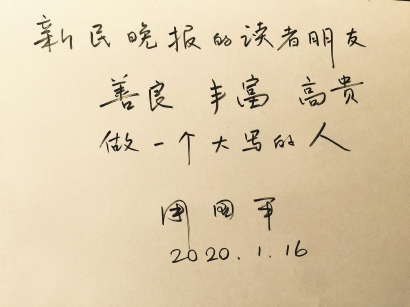 新民晚报的读者朋友
善良 丰富 高贵
做一个大写的人
周国平
2020.1.16